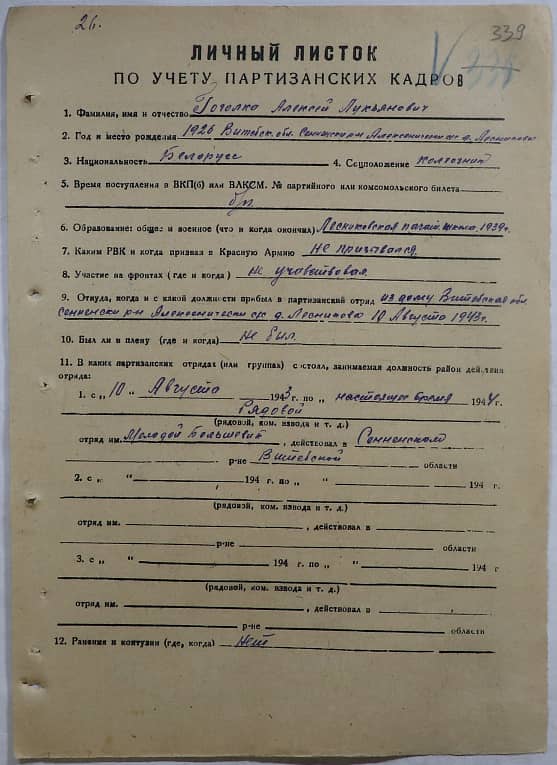 26.
339
ЛИЧНЫЙ ЛИСТОК
ПО УЧЕТУ ПАРТИЗАНСКИХ КАДРОВ
1. Фамилия, имя и отчество Гоголко Алексей Лукьянович
2. Год и место рождения 1926 Витебск. обл. Сенненский р-н Алексеничский с/с д. Лесниково
3. Национальность Белорусс 4. Соцположение колхозник
5. Время поступления в ВКП(б) или ВЛКСМ. № партийного или комсомольского билета
б/п.
6. Образование: общее и военное (что и когда окончил) Лесниковская начальн. школа. 1939г.
7. Каким РВК и когда призван в Красную Армию не призывался.
8. Участие на фронтах (где и когда) не участвовал.
9. Откуда, когда и с какой должности прибыл в партизанский отряд из дому Витебская обл.
Сенненский р-н Алексеничский с/с д. Лесниково 10 Августа 1943г.
10. Был ли в плену (где и когда) Не был.
11. В каких партизанских отрядах (или группах) состоял, занимаемая должность район действия
отряда:
1. с „ 10 “ Августа 1943 г. по „ настоящее время 1944 г.
Рядовой
(рядовой, ком. взвода и т. д.)
отряд им. Молодой Большевик, действовал в Сенненском
р-не Витебской области
2. с „ “ 194 г. по „ “ 194 г.
(рядовой, ком. взвода и т. д.)
отряд им. , действовал в
р-не области
3. с „ “ 194 г. по „ “ 194 г
(рядовой, ком. взвода и т. д.)
отряд им. , действовал в
р-не области
12. Ранения и контузии (где, когда) Нет